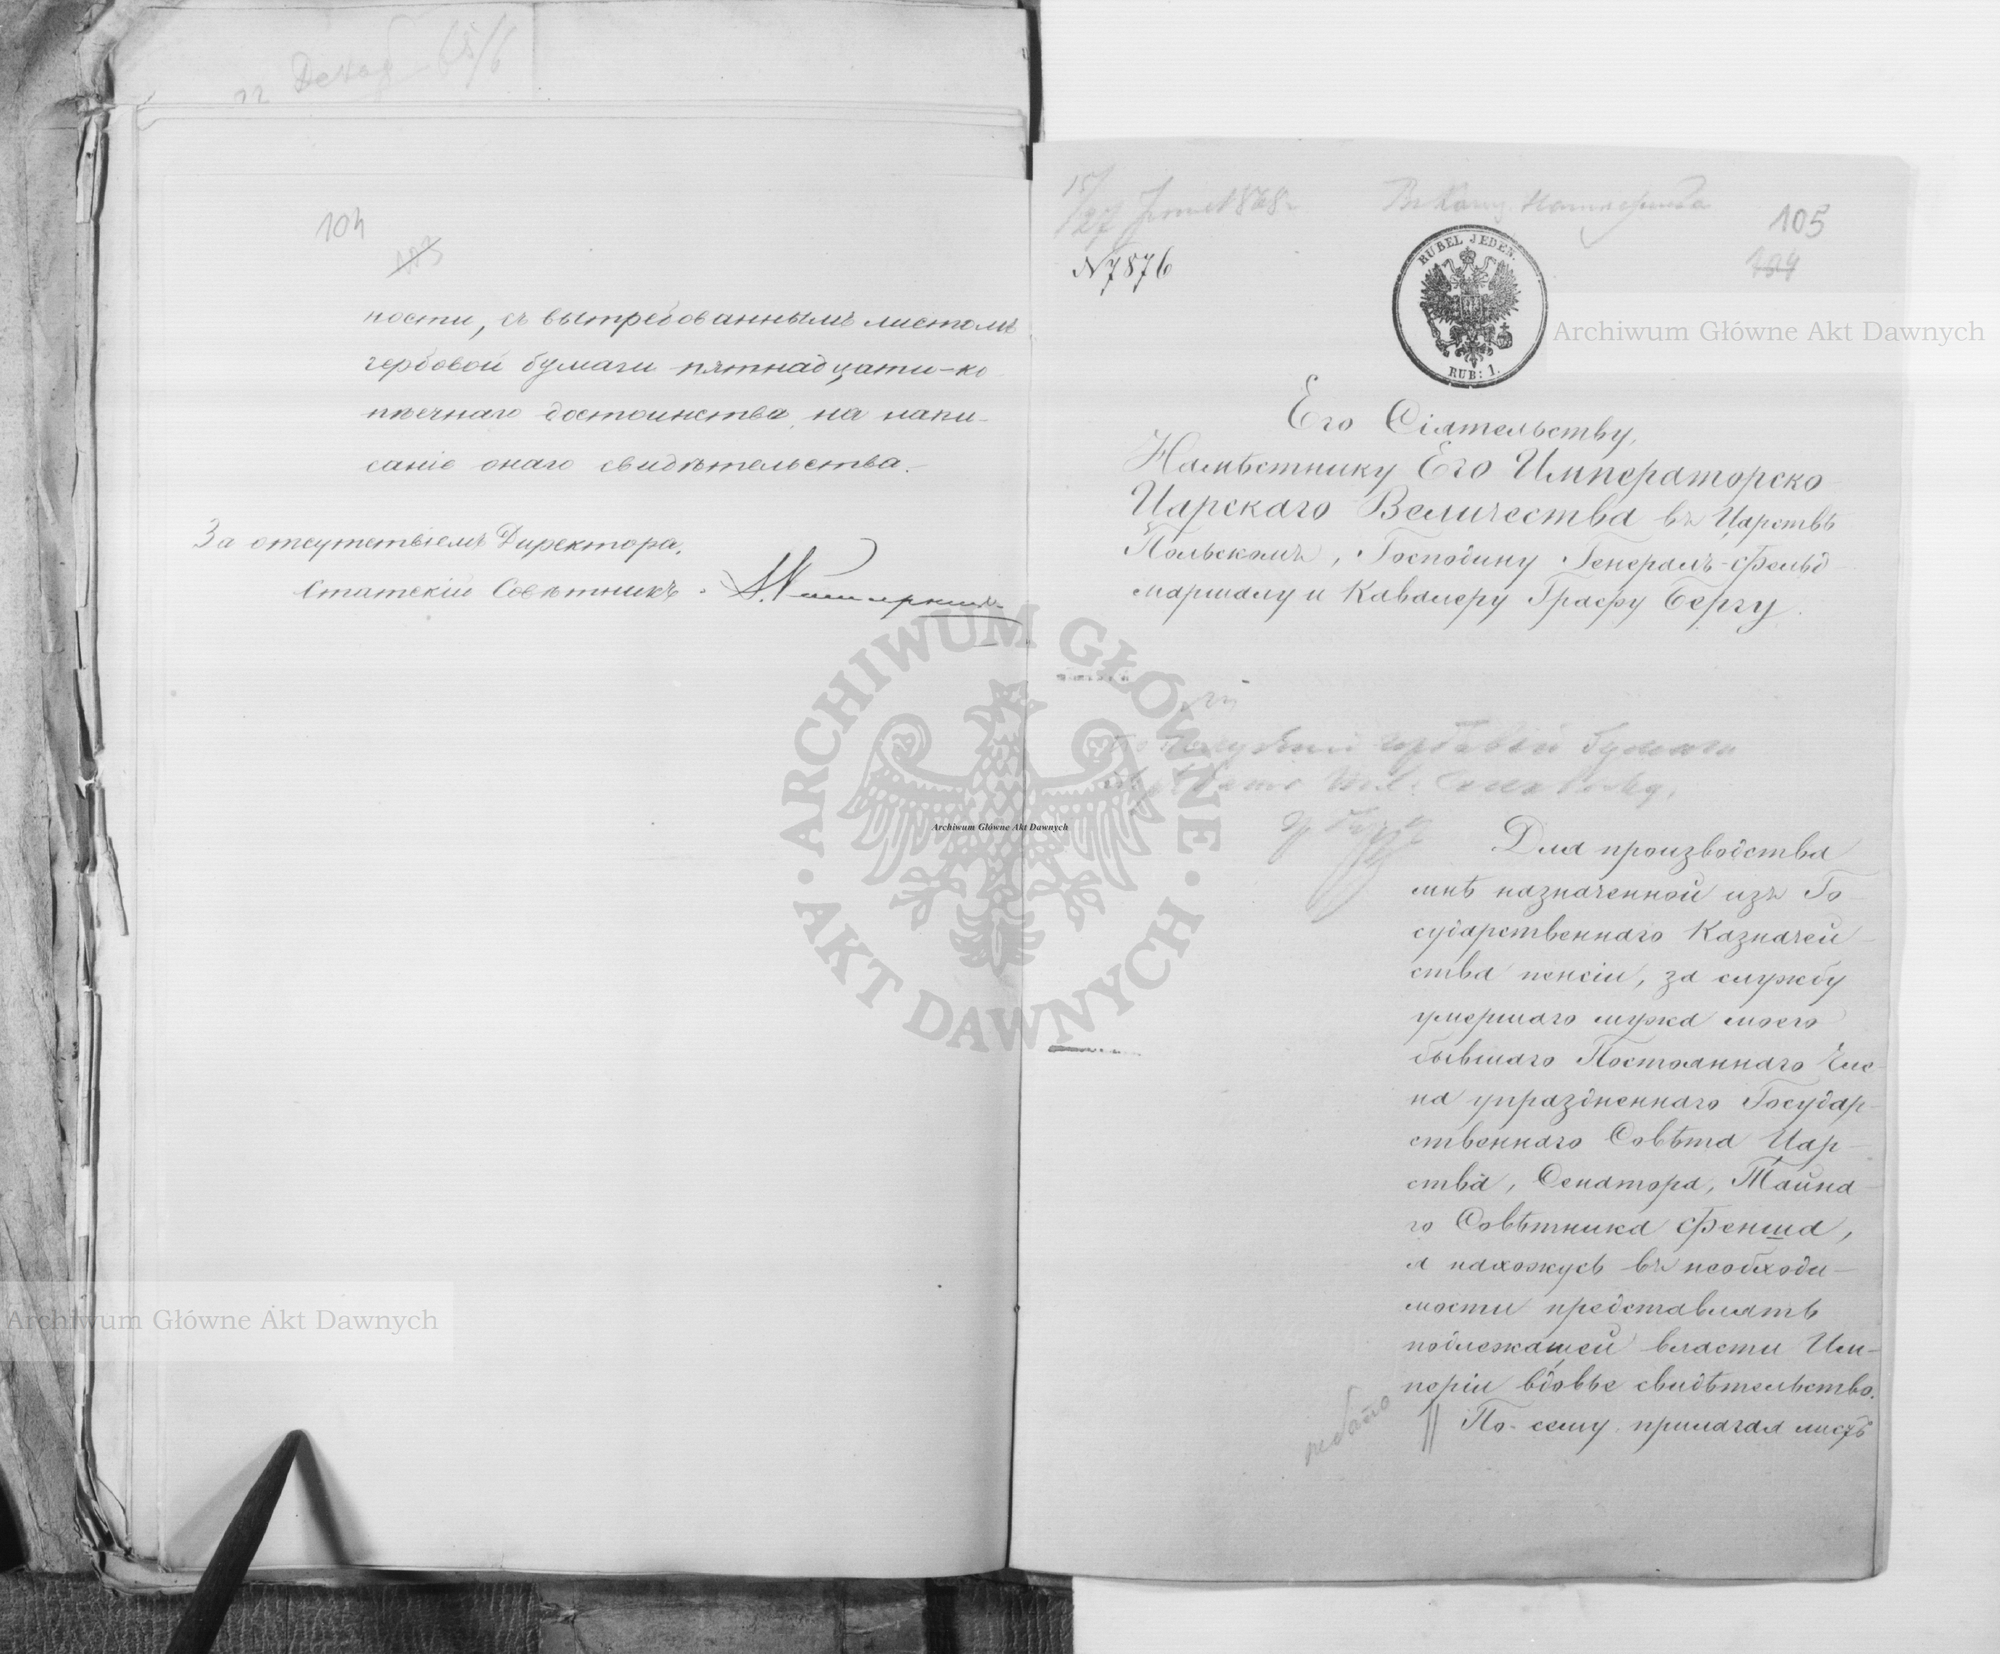 104
103
ности, съ вытребованнымъ листомъ
гербовой бумаги пятнадцати-ко
пѣечнаго достоинства, на напи-
саніе онаго свидѣтельства.
За отсутствіемъ Директора,
Статскій Совѣтникъ
15/27 1868
105
104
N 7876
RUBEL JEDEN.
RUB: 1.
Его Сіятельству,
Намѣстнику Его Императорско
Царскаго Величества въ Царствѣ
Польскомъ, Господину Генералъ-Фельд
маршалу и Кавалеру Графу Бергу.
гербовой бумаги
Для производства
мнѣ назначенной изъ Го
сударственнаго Казначей
ства пенсіи, за службу
умершаго мужа моего
бывшаго Постояннаго Чле
на упраздненнаго Государ-
ственнаго Совѣта Цар-
ства, Сенатора, Тайна-
го Совѣтника Фенша,
я нахожусь въ необходи-
мости представлять
подлежащей власти Им-
періи вдовье свидѣтельство.
По сему прилагая листъ
Archiwum Główne Akt Dawnych
Archiwum Główne Akt Dawnych
Archiwum Główne Akt Dawnych
ARCHIWUM GŁÓWNE · AKT DAWNYCH ·